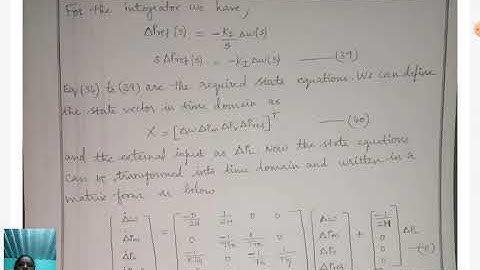 For the integrator we have,
ΔPref(s) = -KI/s Δω(s)
s ΔPref(s) = -KI Δω(s) —— (39)
Eq (36) to (39) are the required state equations. We can define
the state vector in time domain as
X = [Δω ΔPm ΔPv ΔPref]^T —— (40)
and the external input as ΔPL. Now the state equations
can be transformed into time domain and written in a
matrix form as below
[Δω̇ = [-D/2H 1/2H 0 0 [Δω + [-1/2H ΔPL
ΔṖm 0 -1/ 1/ 0 ΔPm 0
ΔṖv 0 -1/Tg 1/Tg ΔPv 0 —(41)
0